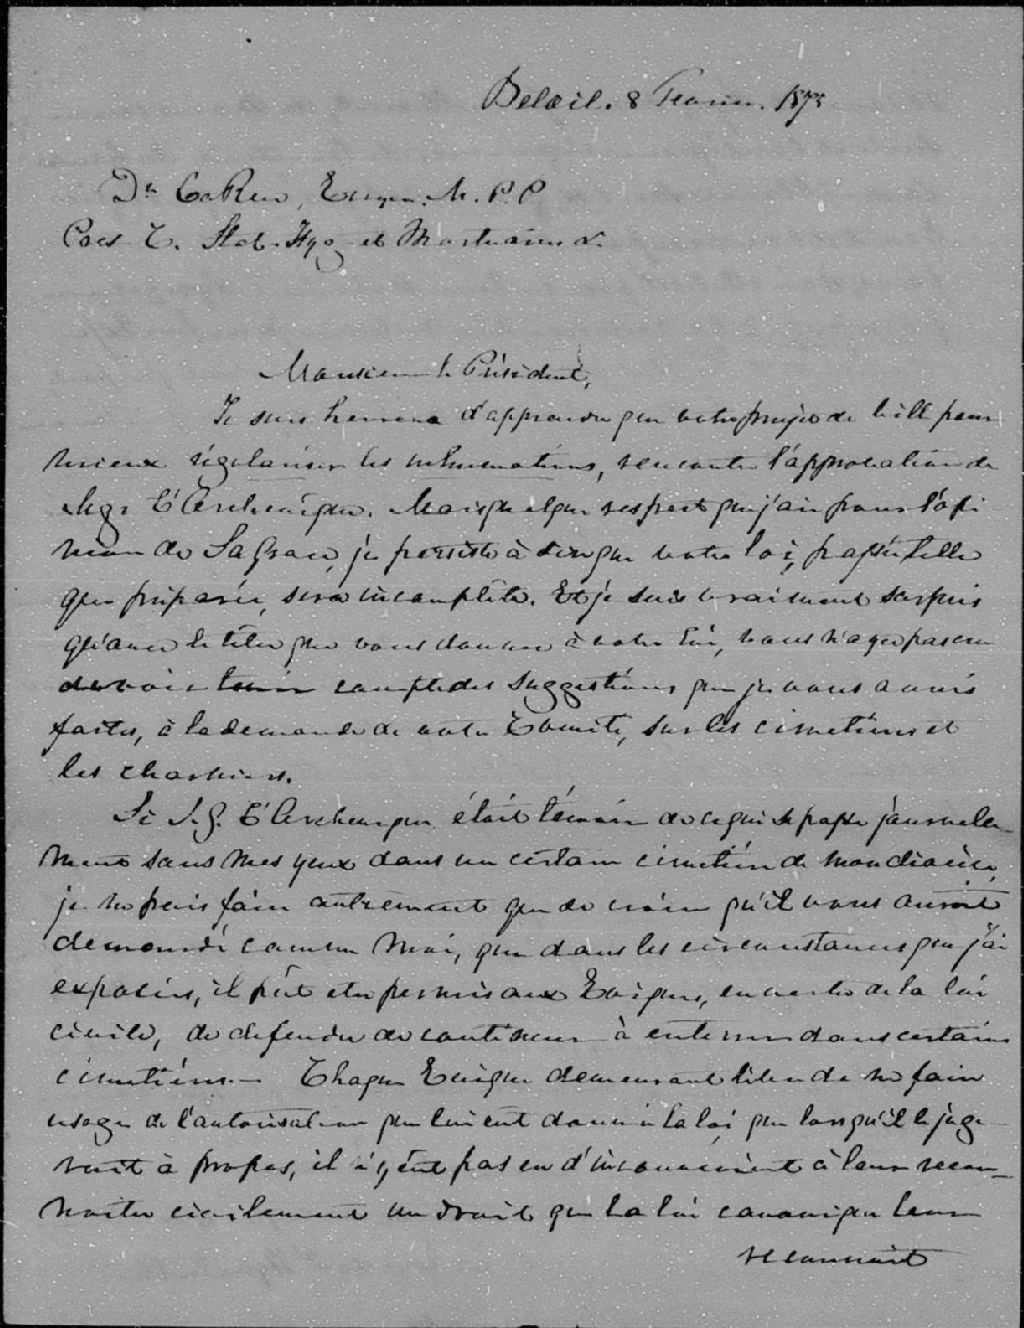 Belœil. 8 Fevrier. 1875
Dr LaRue, Ecuyer. M. P. P
Com. Stat. Hyg. et Mortuaires &.
Monsieur le Président,
Je suis heureux d'apprendre que votre projet de bill pour
mieux régulariser les inhumations, rencontre l'approbation de
Mgr L'Archevêque. Mais quelque respect que j'aie pour l'opi-
nion de Sa Grace, je persiste à dire que votre loi, passée telle
que préparée, sera incomplète. Et je suis vraiment surpris
qu'avec le titre que vous donnez à votre loi, vous n'ayez pas cru
devoir tenir compte des suggestions que je vous avais
faites, à la demande de votre Comité, sur les cimetières et
les charniers.
Si S. G. L'Archevêque était témoin de ce qui se passe journelle-
ment sous mes yeux dans un certain cimetière de mon diocèse,
je ne puis faire autrement que de croire qu'il vous aurait
demandé comme moi, que dans les circonstances que j'ai
exposées, il fût etre permis aux Evêques, en vertu de la loi
civile, de défendre de continuer à enterrer dans certains
cimetières. — Chaque Evêque demeurant libre de ne faire
usage de l'autorisation que lui eut donnée la loi que lorsqu'il le juge-
rait à propos, il n'y eut pas eu d'inconvenient à leur recon-
naitre civilement un droit que la loi canonique leur
reconnait